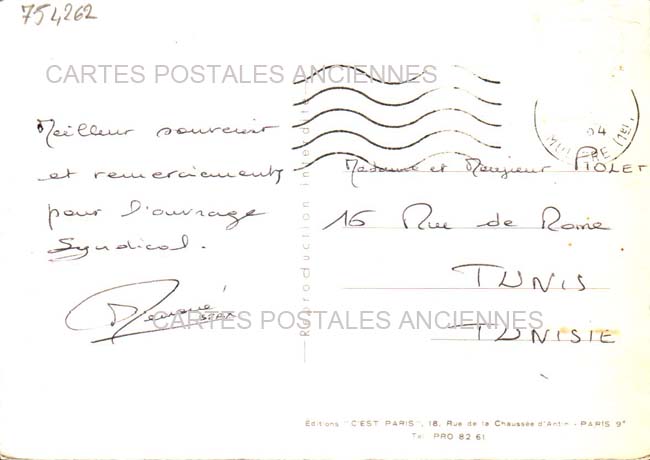 754262
CARTES POSTALES ANCIENNES
Meilleur souvenir
et remerciements
pour l'ouvrage
Syndical.
Reproduction interdite
Madame et Monsieur PIOLET
16 Rue de Rome
TUNIS
TUNISIE
CARTES POSTALES ANCIENNES
Editions "C'EST PARIS", 18, Rue de la Chaussée d'Antin - PARIS 9e
Tel. PRO 82 61